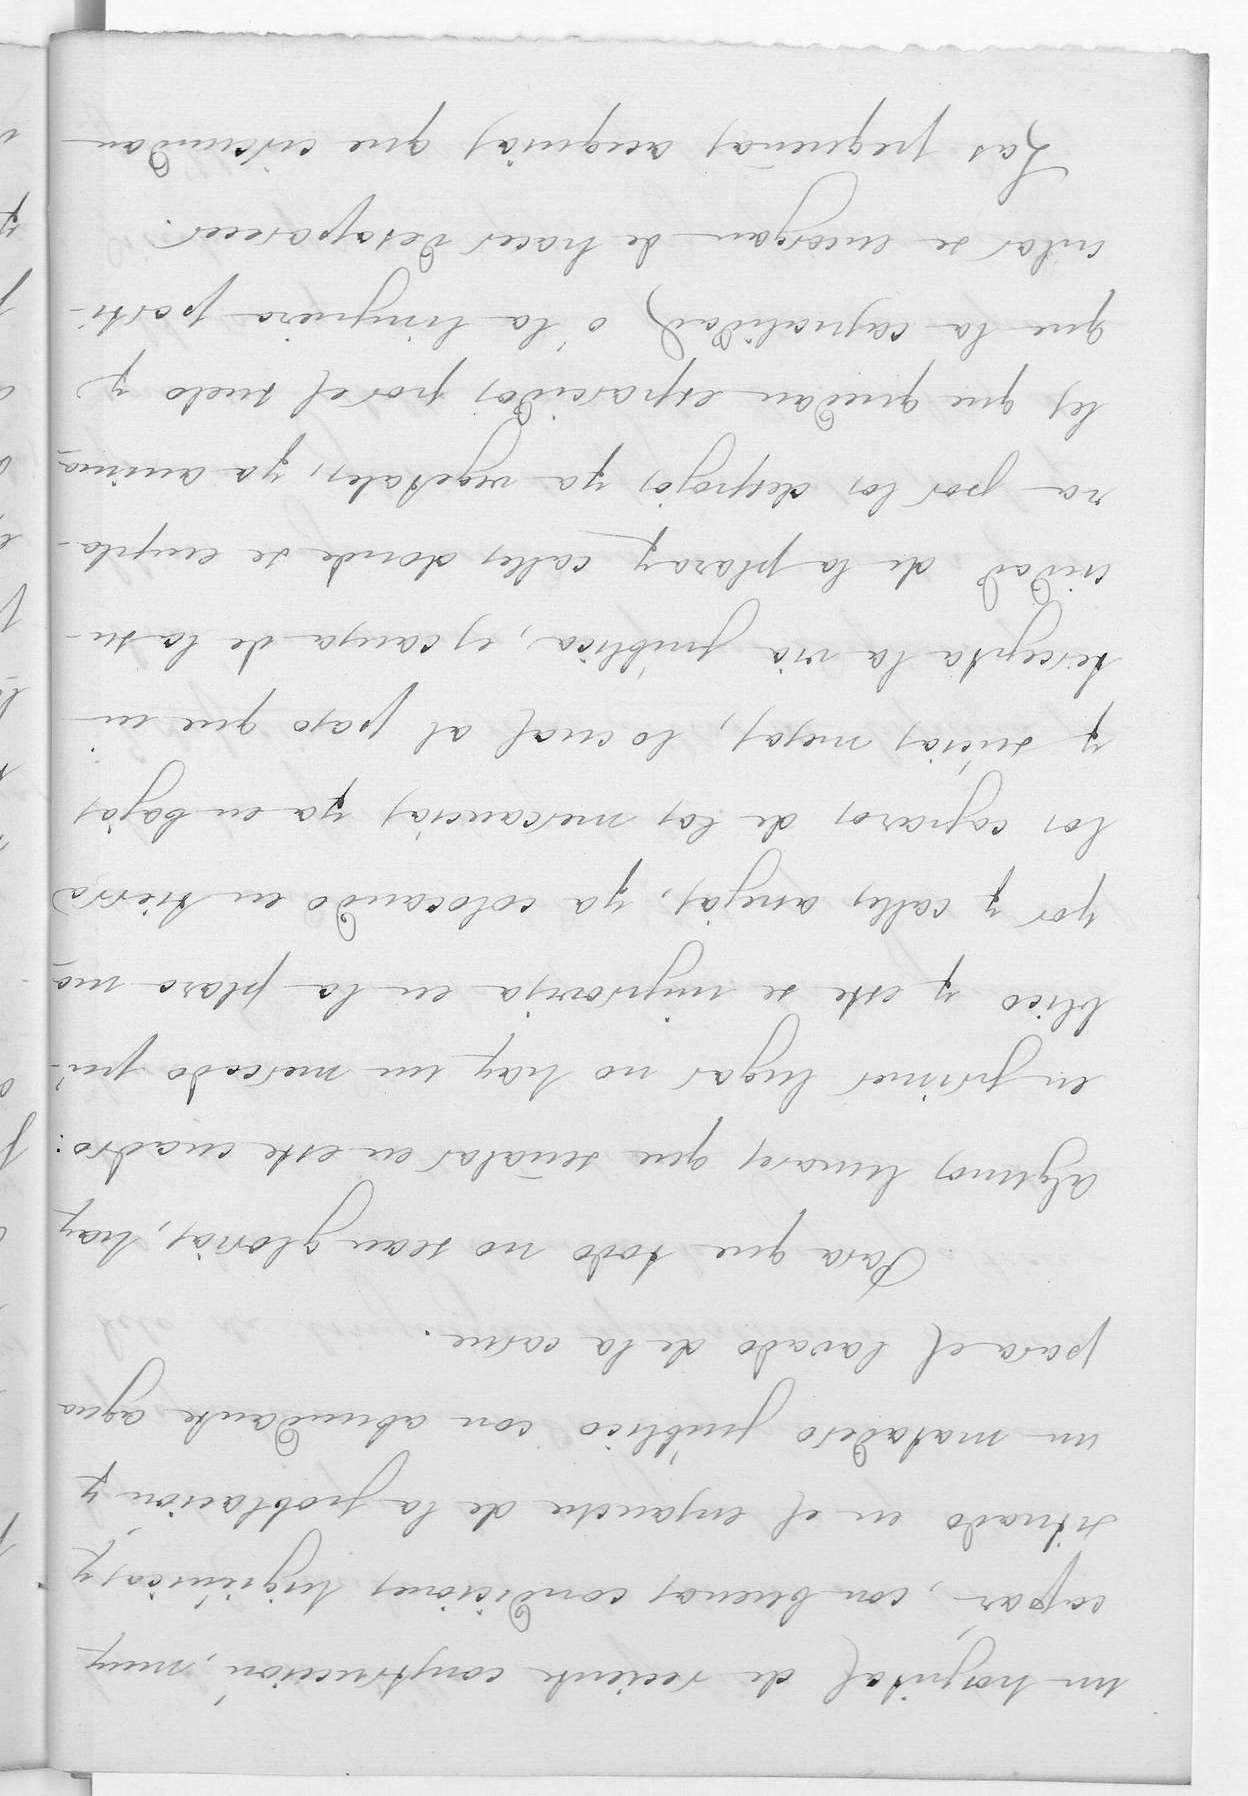 un hospital de reciente construcción, muy
capáz, con buenas condiciones higiénicas y
situado en el ensanche de la población y
un matadero público con abundante agua
para el lavado de la carne.
Para que todo no sean glorias, hay
algunos lunares que señalar en este cuadro:
en primer lugar no hay un mercado pú-
blico y este se improvisa en la plaza ma-
yor y calles anejas, ya colocando en tierra
los capazos de las mercancías ya en bajas
y súcias mesas, lo cual al paso que in-
tercepta la via pública, es causa de la su-
ciedad de la plaza y calles donde se empla-
za por los despojos ya vegetales, ya anima-
les que quedan esparcidos por el suelo y
que la casualidad ó la limpieza parti-
cular se encargan de hacer desaparecer.
Las pequeñas acequias que circundan